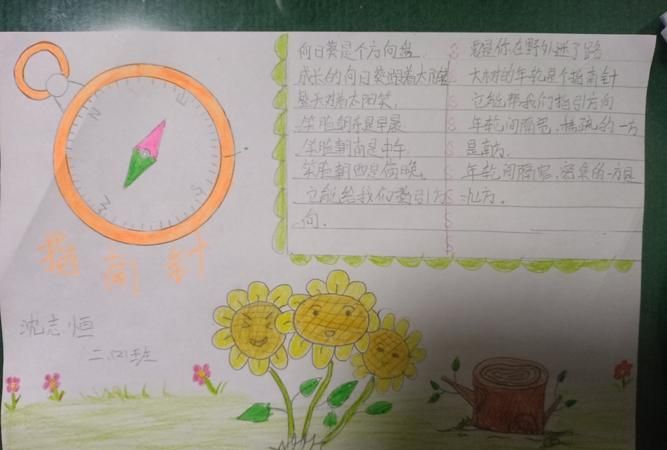 N
E
S
指南针
沈志恒
二、(2)班
向日葵是个方向盘，
成长的向日葵跟着太阳转
整天对着太阳笑，
笑脸朝东是早晨
笑脸朝南是中午，
笑脸朝西是傍晚。
它能给我们指引方
向。
要是你在野外迷了路
大树的年轮是个指南针
它能帮我们指引方向
年轮间隔宽，稀疏的一方
是南方。
年轮间隔窄，密集的一方是
北方。